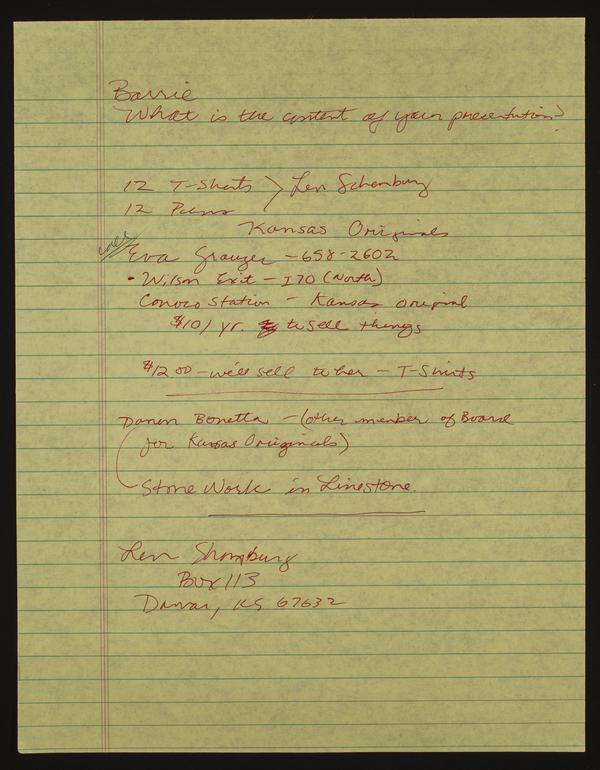 Barrie
What is the content of your presentation?
12 T-Shirts > Len Schamburg
12 Pens
Kansas Originals
Eva Grauger - 658-2602
• Wilson Exit - I70 (North)
Conoco Station - Kansas Original
$10/yr. to sell things
$12.00 - we'll sell to her - T-Shirts
Danen Bonetta - (other member of Board
for Kansas Originals)
Stone Work in Limestone.
Len Shamburg
Box 113
Damar, KS 67632